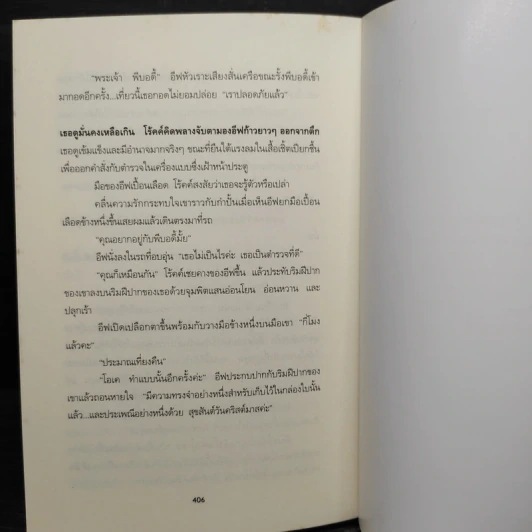 "พระเจ้า พีบอดี้" อีฟหัวเราะเสียงสั่นเครือขณะรั้งพีบอดี้เข้า
มากอดอีกครั้ง...เที่ยวนี้เธอกอดไม่ยอมปล่อย "เราปลอดภัยแล้ว"
เธอดูมั่นคงเหลือเกิน โร้คค์คิดพลางจับตามองอีฟก้าวยาวๆ ออกจากตึก
เธอดูเข้มแข็งและมีอำนาจมากจริงๆ ขณะที่ยืนโต้แรงลมในเสื้อเชิ้ตเปียกชื้น
เพื่อออกคำสั่งกับตำรวจในเครื่องแบบซึ่งเฝ้าหน้าประตู
มือของอีฟเปื้อนเลือด โร้คค์สงสัยว่าเธอจะรู้ตัวหรือเปล่า
คลื่นความรักกระทบใจเขาราวกับกำปั้นเมื่อเห็นอีฟยกมือเปื้อน
เลือดข้างหนึ่งขึ้นเสยผมแล้วเดินตรงมาที่รถ
"คุณอยากอยู่กับพีบอดี้มั้ย"
อีฟนั่งลงในรถที่อบอุ่น "เธอไม่เป็นไรค่ะ เธอเป็นตำรวจที่ดี"
"คุณก็เหมือนกัน" โร้คค์เชยคางของอีฟขึ้น แล้วประทับริมฝีปาก
ของเขาลงบนริมฝีปากของเธอด้วยจุมพิตแสนอ่อนโยน อ่อนหวาน และ
ปลุกเร้า
อีฟเปิดเปลือกตาขึ้นพร้อมกับวางมือข้างหนึ่งบนมือเขา "กี่โมง
แล้วคะ"
"ประมาณเที่ยงคืน"
"โอเค ทำแบบนั้นอีกครั้งค่ะ" อีฟประกบปากกับริมฝีปากของ
เขาแล้วถอนหายใจ "มีความทรงจำอย่างหนึ่งสำหรับเก็บไว้ในกล่องใบนั้น
แล้ว...และประเพณีอย่างหนึ่งด้วย สุขสันต์วันคริสต์มาสค่ะ"
406